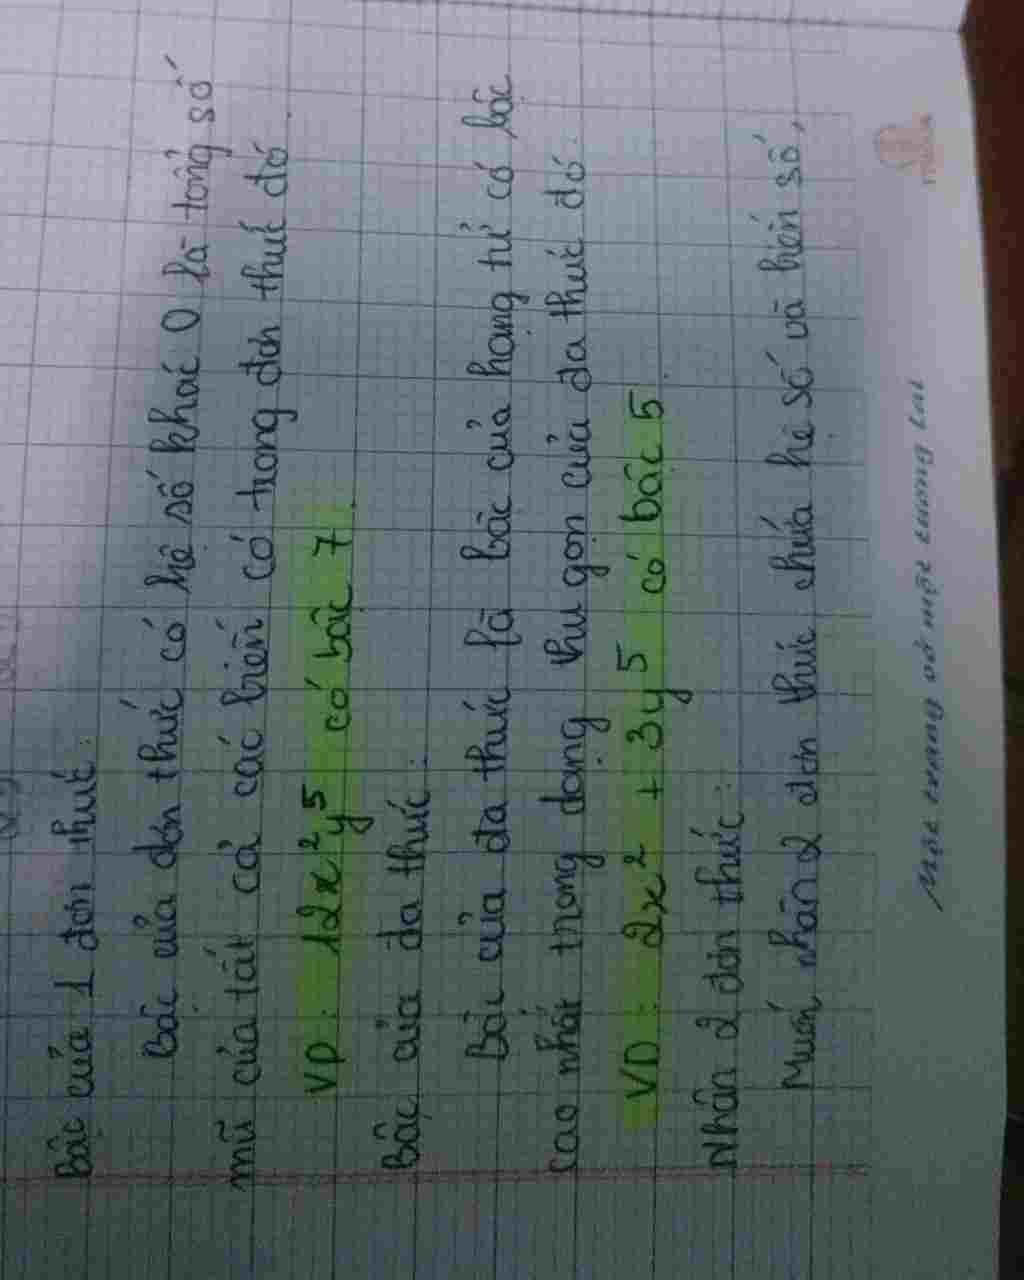 Bậc của 1 đơn thức:
Bậc của đơn thức có hệ số khác 0 là tổng số
mũ của tất cả các biến có trong đơn thức đó.
VD: 12x²y⁵ có bậc 7.
Bậc của đa thức:
Bậc của đa thức là bậc của hạng tử có bậc
cao nhất trong dạng thu gọn của đa thức đó.
VD: 2x² + 3y⁵ có bậc 5.
Nhân 2 đơn thức:
Muốn nhân 2 đơn thức chứa hệ số và biến số,
Một trang vở một tương lai